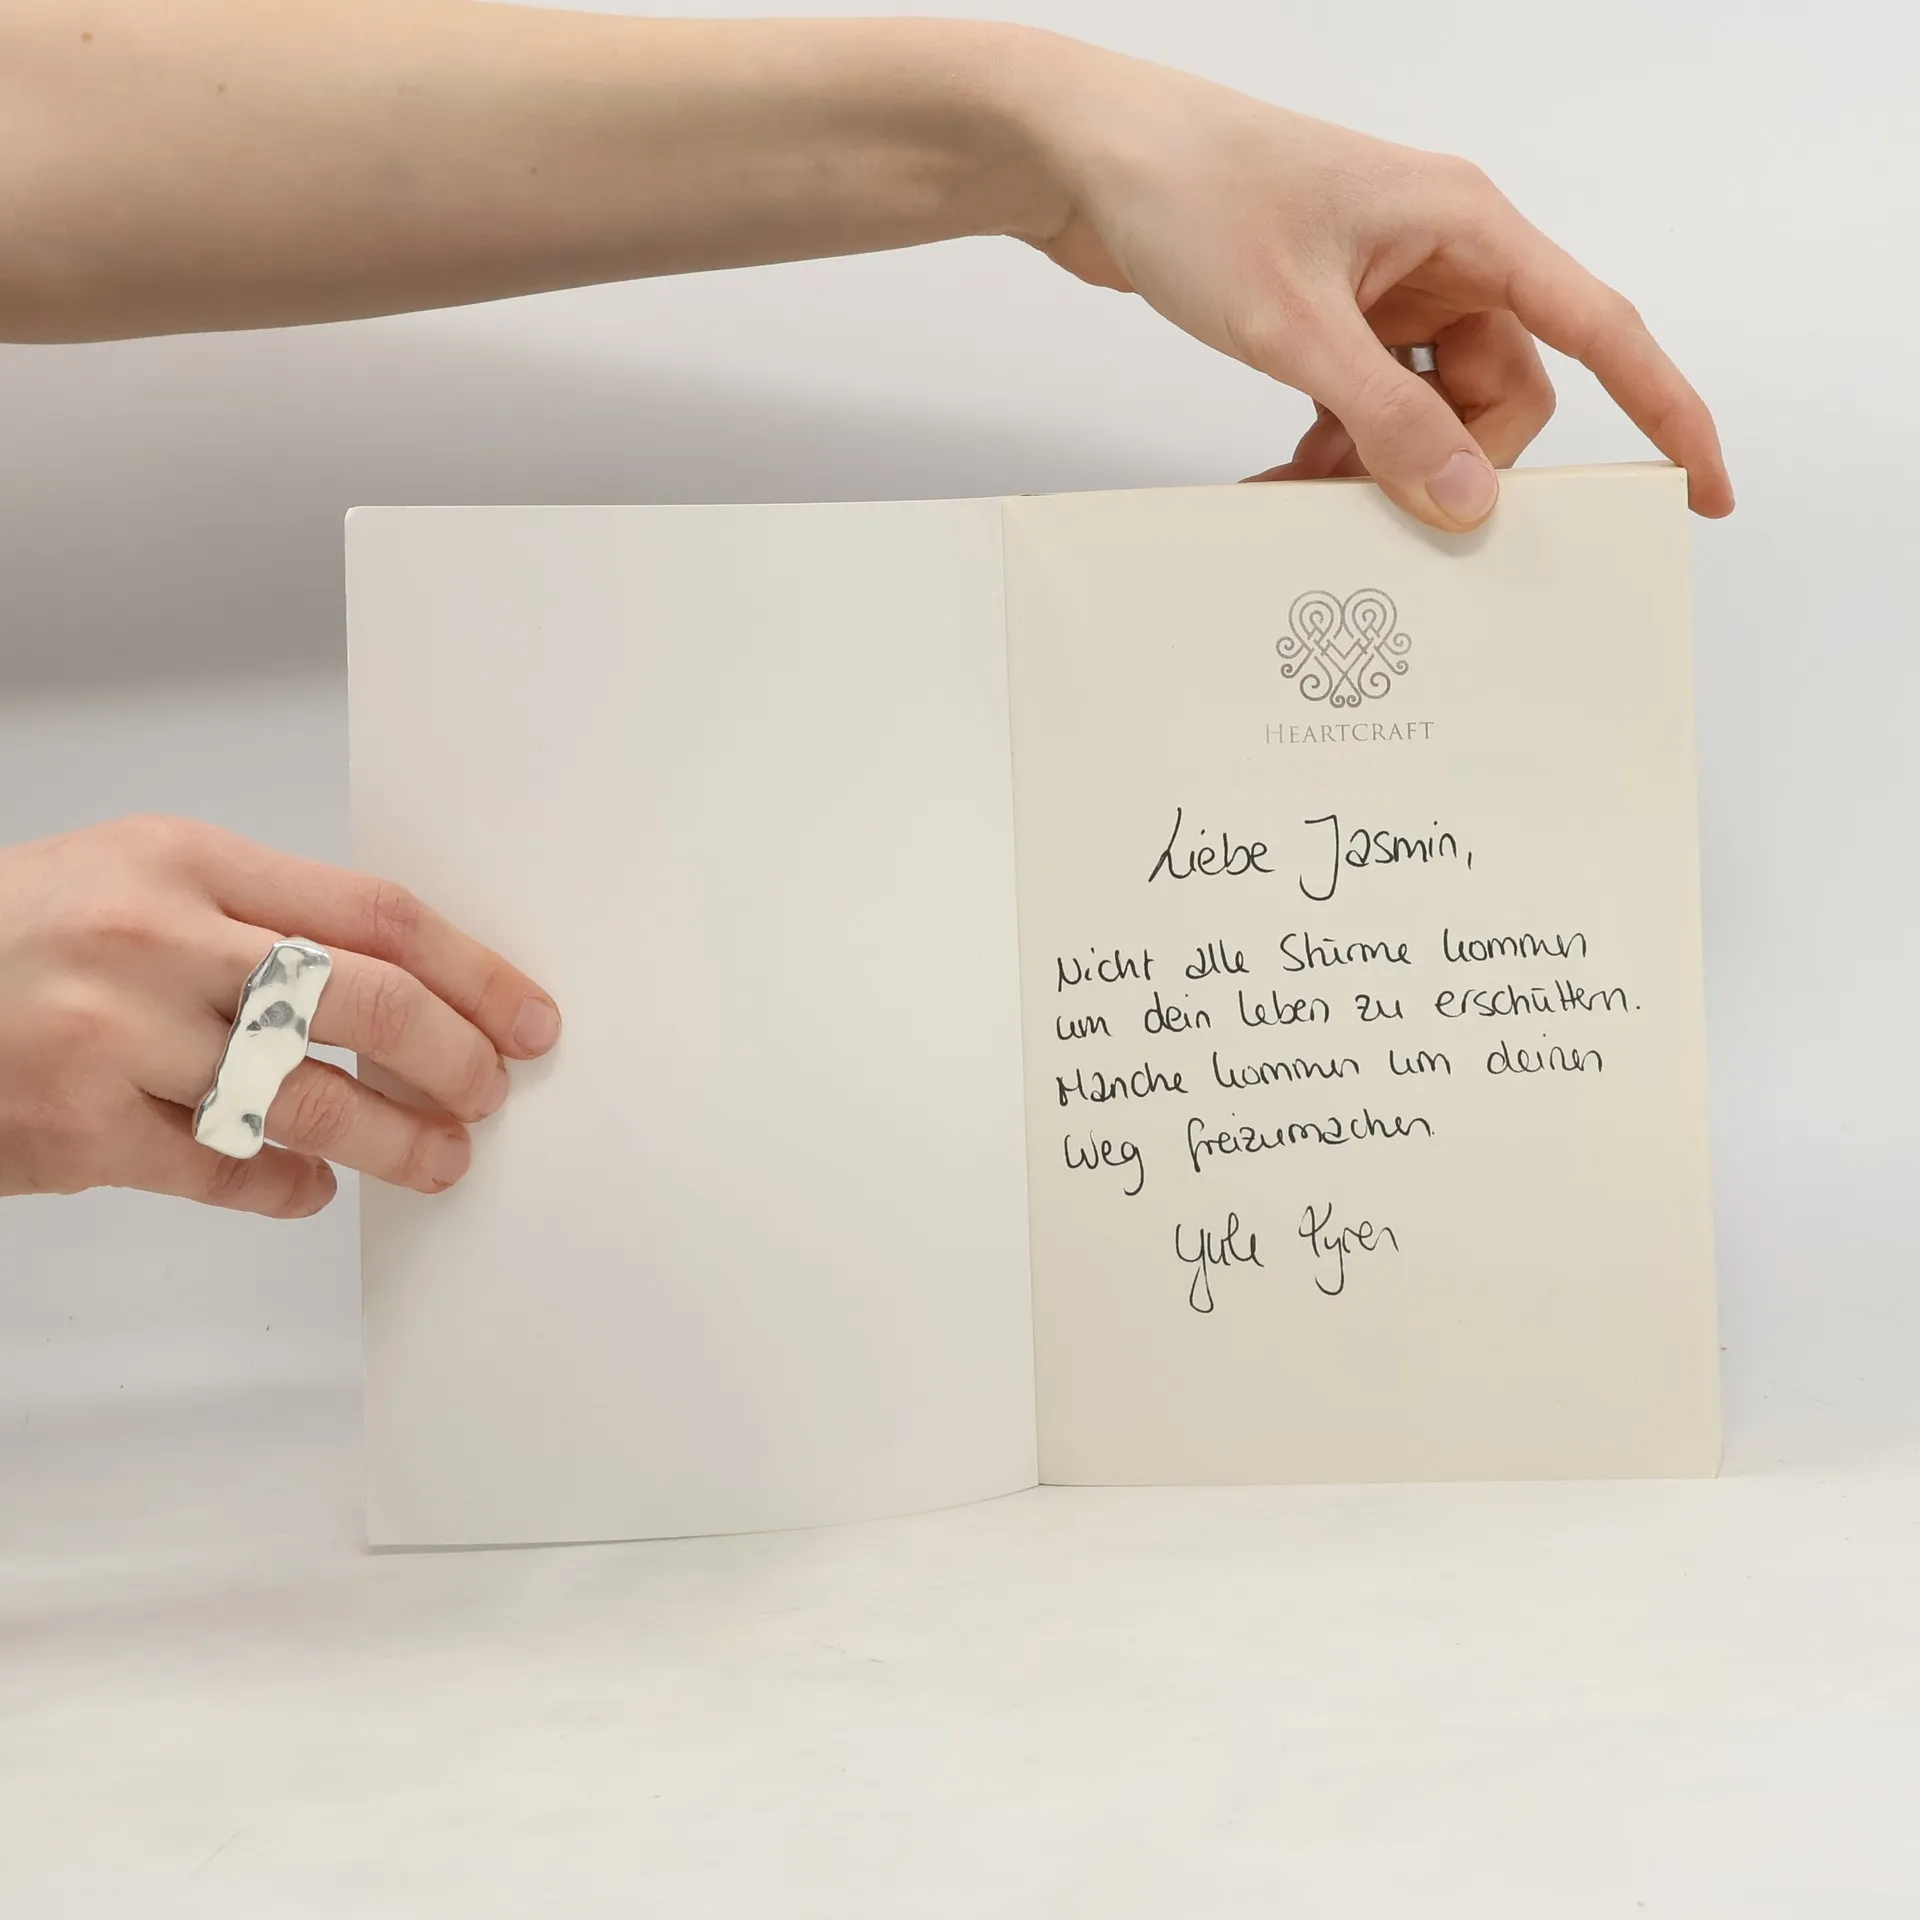 HEARTCRAFT
Liebe Jasmin,
Nicht alle Stürme kommen
um dein Leben zu erschüttern.
Manche kommen um deinen
Weg freizumachen.
Yule Pyren